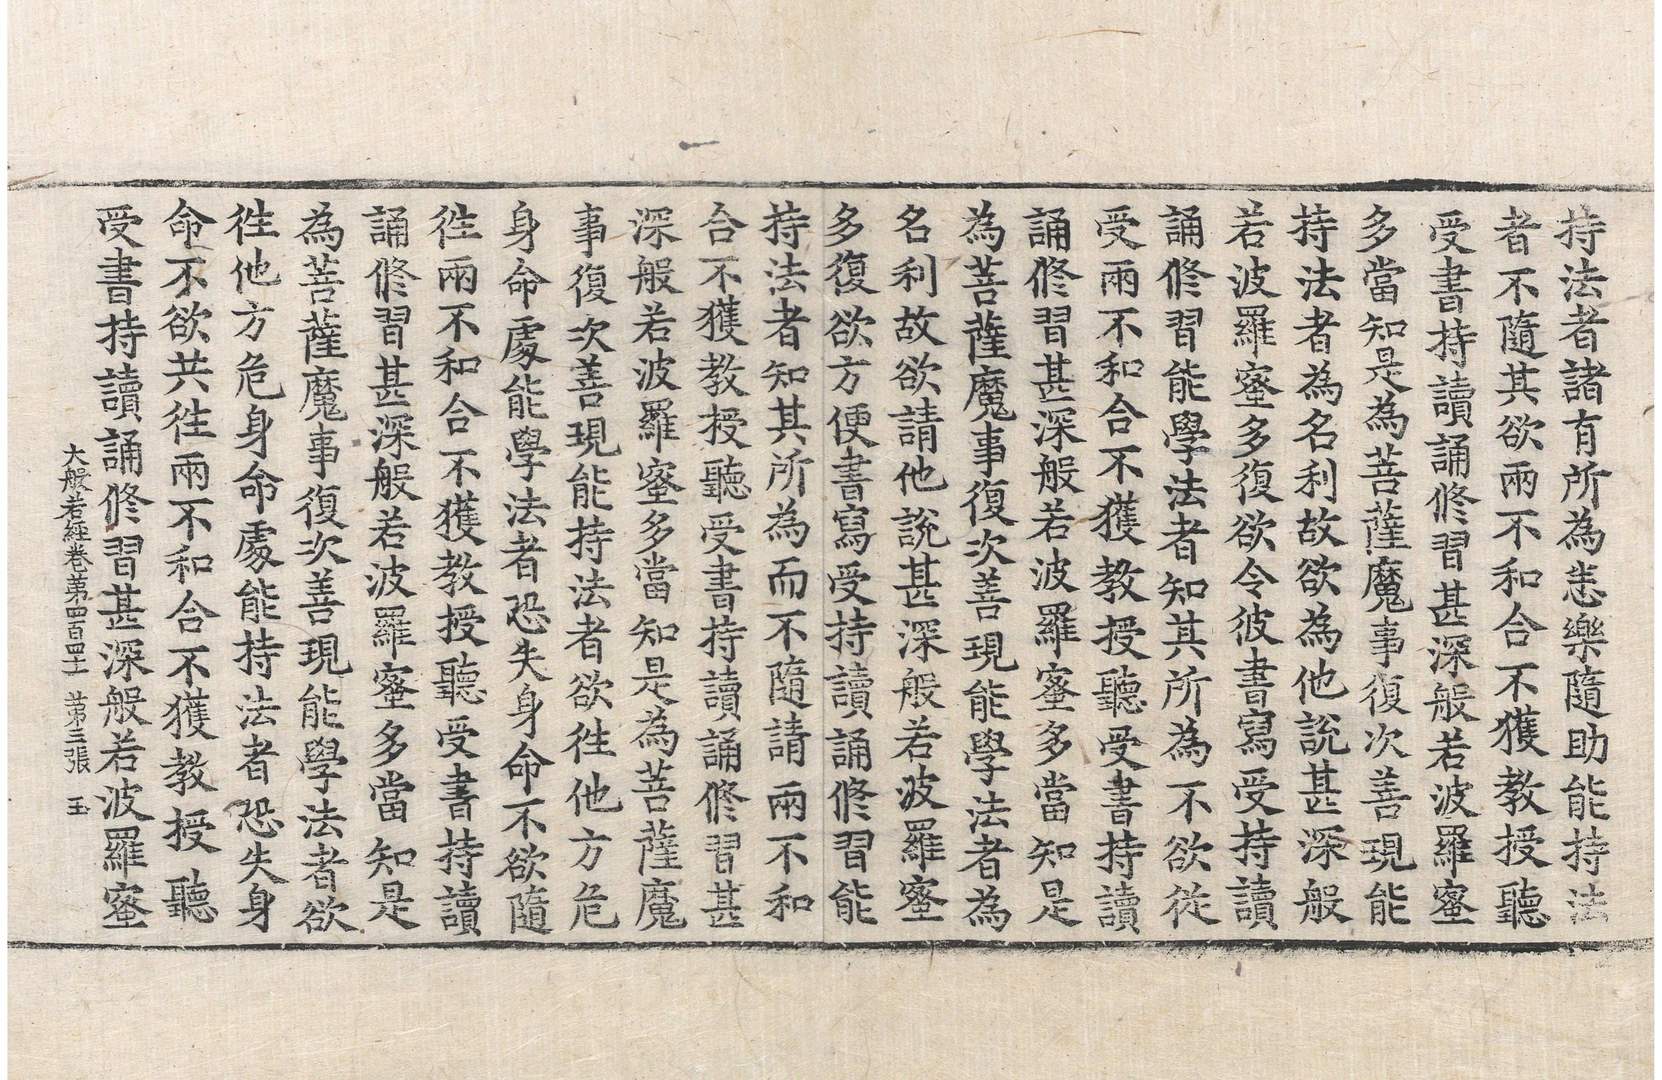 持法者諸有所為恚樂隨助能持法
者不隨其欲兩不和合不獲教授聽
受書持讀誦修習甚深般若波羅蜜
多當知是為菩薩魔事復次善現能
持法者為名利故欲為他說甚深般
若波羅蜜多復欲令彼書寫受持讀
誦修習能學法者知其所為不欲從
受兩不和合不獲教授聽受書持讀
誦修習甚深般若波羅蜜多當知是
為菩薩魔事復次善現能學法者為
名利故欲請他說甚深般若波羅蜜
多復欲方便書寫受持讀誦修習能
持法者知其所為而不隨請兩不和
合不獲教授聽受書持讀誦修習甚
深般若波羅蜜多當知是為菩薩魔
事復次善現能持法者欲徃他方危
身命處能學法者恐失身命不欲隨
徃兩不和合不獲教授聽受書持讀
誦修習甚深般若波羅蜜多當知是
為菩薩魔事復次善現能學法者欲
徃他方危身命處能持法者恐失身
命不欲共徃兩不和合不獲教授聽
受書持讀誦修習甚深般若波羅蜜
大般若經卷第四百四十 第三張 玉